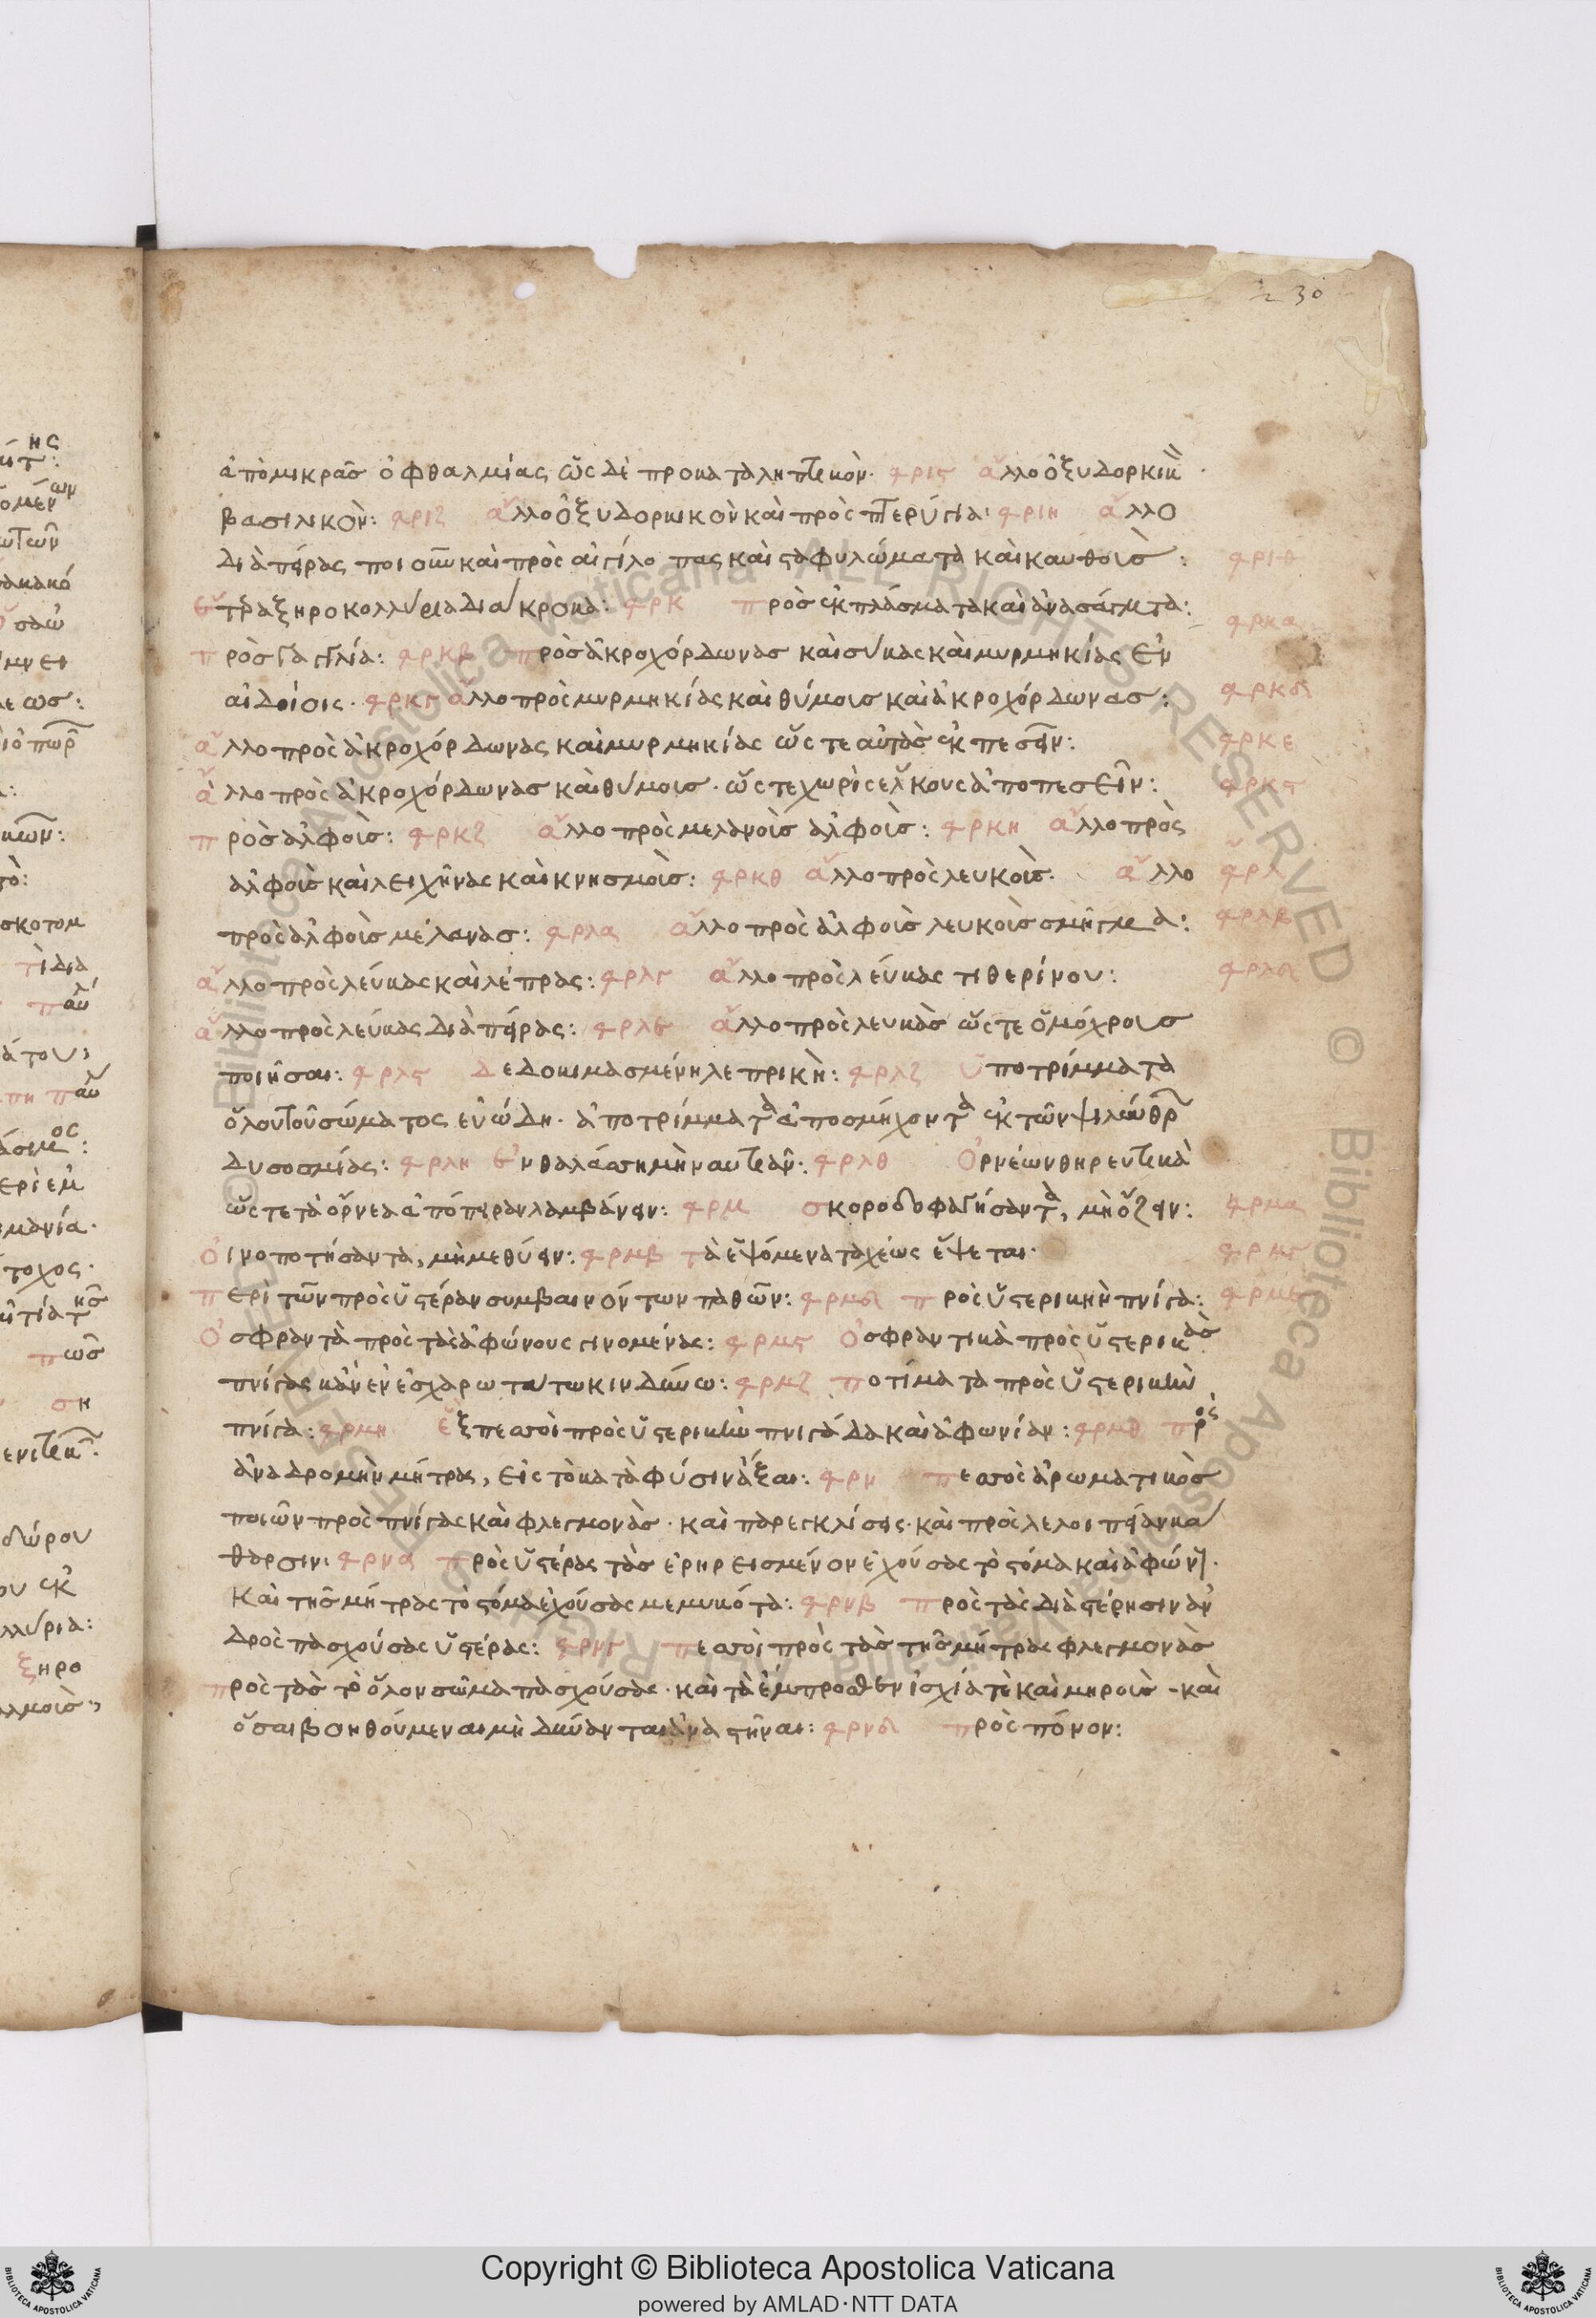 230
ἀπὸ μικρᾶς ὀφθαλμίας ὥς δὲ προκαταληπτικὸν· φριϛ ἄλλο ὀξυδορκικὸν·
βασιλικὸν: φριζ ἄλλο ὀξυδορκικὸν καὶ πρὸς πτερύγια· φριη ἄλλο
διὰ πείρας ποιοῦν καὶ πρὸς αἰγίλοπας καὶ σταφυλώματα καὶ κανθοὺς: φριθ
ἕτερα ξηροκολλύρια διάκροκα: φρκ πρὸς ἐκπλάσματα καὶ ἀνασάγματα: φρκα
πρὸς γαγγλία: φρκβ πρὸς ἀκροχόρδωνας καὶ σύκας καὶ μυρμηκίας ἐν
αἰδοίοις· φρκγ ἄλλο πρὸς μυρμηκίας καὶ θύμους καὶ ἀκροχόρδωνας: φρκδ
ἄλλο πρὸς ἀκροχόρδωνας καὶ μυρμηκίας ὥς τε αὐτὰς ἐκπεσεῖν: φρκε
ἄλλο πρὸς ἀκροχόρδωνας καὶ θύμους· ὥς τε χωρὶς ἕλκους ἀποπεσεῖν: φρκϛ
πρὸς ἀλφοὺς: φρκζ ἄλλο πρὸς μελανοὺς ἀλφοὺς: φρκη ἄλλο πρὸς
ἀλφοὺς καὶ λειχῆνας καὶ κνησμοὺς: φρκθ ἄλλο πρὸς λευκοὺς· ἄλλο φρλ
πρὸς ἀλφοὺς μέλανας: φρλα ἄλλο πρὸς ἀλφοὺς λευκοὺς σμῆγμα: φρλβ
ἄλλο πρὸς λεύκας καὶ λέπρας: φρλγ ἄλλο πρὸς λεύκας τιθερίνου: φρλδ
ἄλλο πρὸς λεύκας διὰ πείρας: φρλε ἄλλο πρὸς λευκὰς ὥς τε ὁμόχρους
ποιῆσαι: φρλϛ δεδοκιμασμένη λεπρικὴ: φρλζ ὑποτρίμματα
ὅλου τοῦ σώματος εὐώδη· ἀποτρίμματα ἀποσμήχοντα ἐκ τῶν ψιλώθρ
δυσοσμίας: φρλη ἐν θαλάσση μὴ ναυτιᾶν: φρλθ ὀρνέων θηρευτικὰ
ὥς τε τὰ ὄρνεα ἀπόπειραν λαμβάνειν: φρμ σκοροδοφαγήσαντα, μὴ ὄζειν: φρμα
οἰνοποτήσαντα, μὴ μεθύειν: φρμβ τὰ ἑψόμενα ταχέως ἕψεται· φρμγ
περὶ τῶν πρὸς ὑστέραν συμβαινόντων παθῶν: φρμδ πρὸς ὑστερικὴν πνίγα: φρμε
ὀσφραντὰ πρὸς τὰς ἀφώνους γινομένας: φρμϛ ὀσφραντικὰ πρὸς ὑστερικὰς
πνίγας κἂν ἐν ἐσχαρωτάτω κινδύνω: φρμζ ποτίματα πρὸς ὑστερικὴν
πνίγα: φρμη ἐξπεσσοὶ πρὸς ὑστερικὴν πνιγάδα καὶ ἀφωνίαν: φρμθ πρὸς
ἀναδρομὴν μήτρας, εἰς τὸ κατὰ φύσιν ἄξαι: φρν πεσσὸς ἀρωματικὸς
ποιῶν πρὸς πνίγας καὶ φλεγμονὰς· καὶ παρεγκλίσεις· καὶ πρὸς λελοιπεῖαν κα
θαρσιν· φρνα πρὸς ὑστέρας τὰς ἐρηρεισμένον ἐχούσας τὸ στόμα καὶ ἀφών·
καὶ τῆς μήτρας τὸ στόμα ἐχούσας μεμυκότα: φρνβ πρὸς τὰς διὰ στέρησιν ἀν
δρὸς πασχούσας ὑστέρας: φρνγ πεσσοὶ πρὸς τὰς τῆς μήτρας φλεγμονὰς
πρὸς τὰς τὸ ὅλον σῶμα πασχούσας· καὶ τὰ ἔμπροσθεν ἰσχία τὲ καὶ μηροὺς - καὶ
ὅσαι βοηθούμεναι μὴ δύνανται ἀναστῆναι: φρνδ πρὸς πόνον:
© Biblioteca Apostolica Vaticana ALL RIGHTS RESERVED
Copyright © Biblioteca Apostolica Vaticana
powered by AMLAD·NTT DATA
BIBLIOTECA APOSTOLICA VATICANA
BIBLIOTECA APOSTOLICA VATICANA